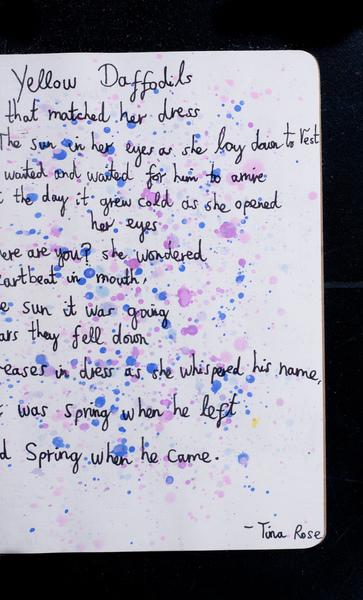 Yellow Daffodils
that matched her dress
The sun in her eyes as she lay down to rest
waited and waited for him to arrive
the day it grew cold as she opened
her eyes
ere are you? she wondered
eartbeat in mouth,
e sun it was going
ars they fell down
eases in dress as she whispered his name,
was spring when he left
d Spring when he came.
- Tina Rose